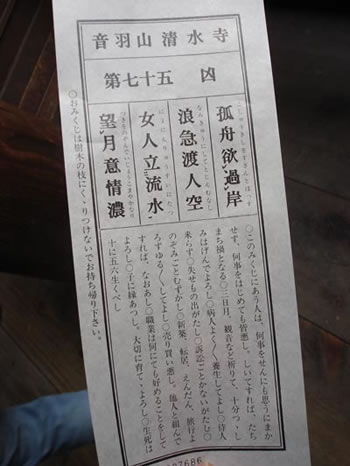 音羽山清水寺
第七十五 凶
孤舟欲過岸
浪急渡人空
女人立流水
望月意情濃
〇このみくじにあう人は、何事をせんにも思うにまか
せず、何事をはじめても皆悪し。しいてすれば、たち
まち禍となる〇三日月、観音など祈りて、十分つゝし
みはげんでよろし〇病人よく〳〵養生してよし〇待人
来らず〇失せもの出がたし〇訴訟ごとかないがたし〇
のぞみごとむずかし〇新築、転居、えんだん、旅行よ
ろずゆるゆる〳〵してよし〇売り買い悪し。他人と組んで
すれば、なおあし〇職業は何にても好めることをして
よろし〇子に縁あつし。大切に育てゝよろし〇生死は
十に五六生くべし
〇おみくじは樹木の枝にくゝりつけないでお持ち帰り下さい。
7686